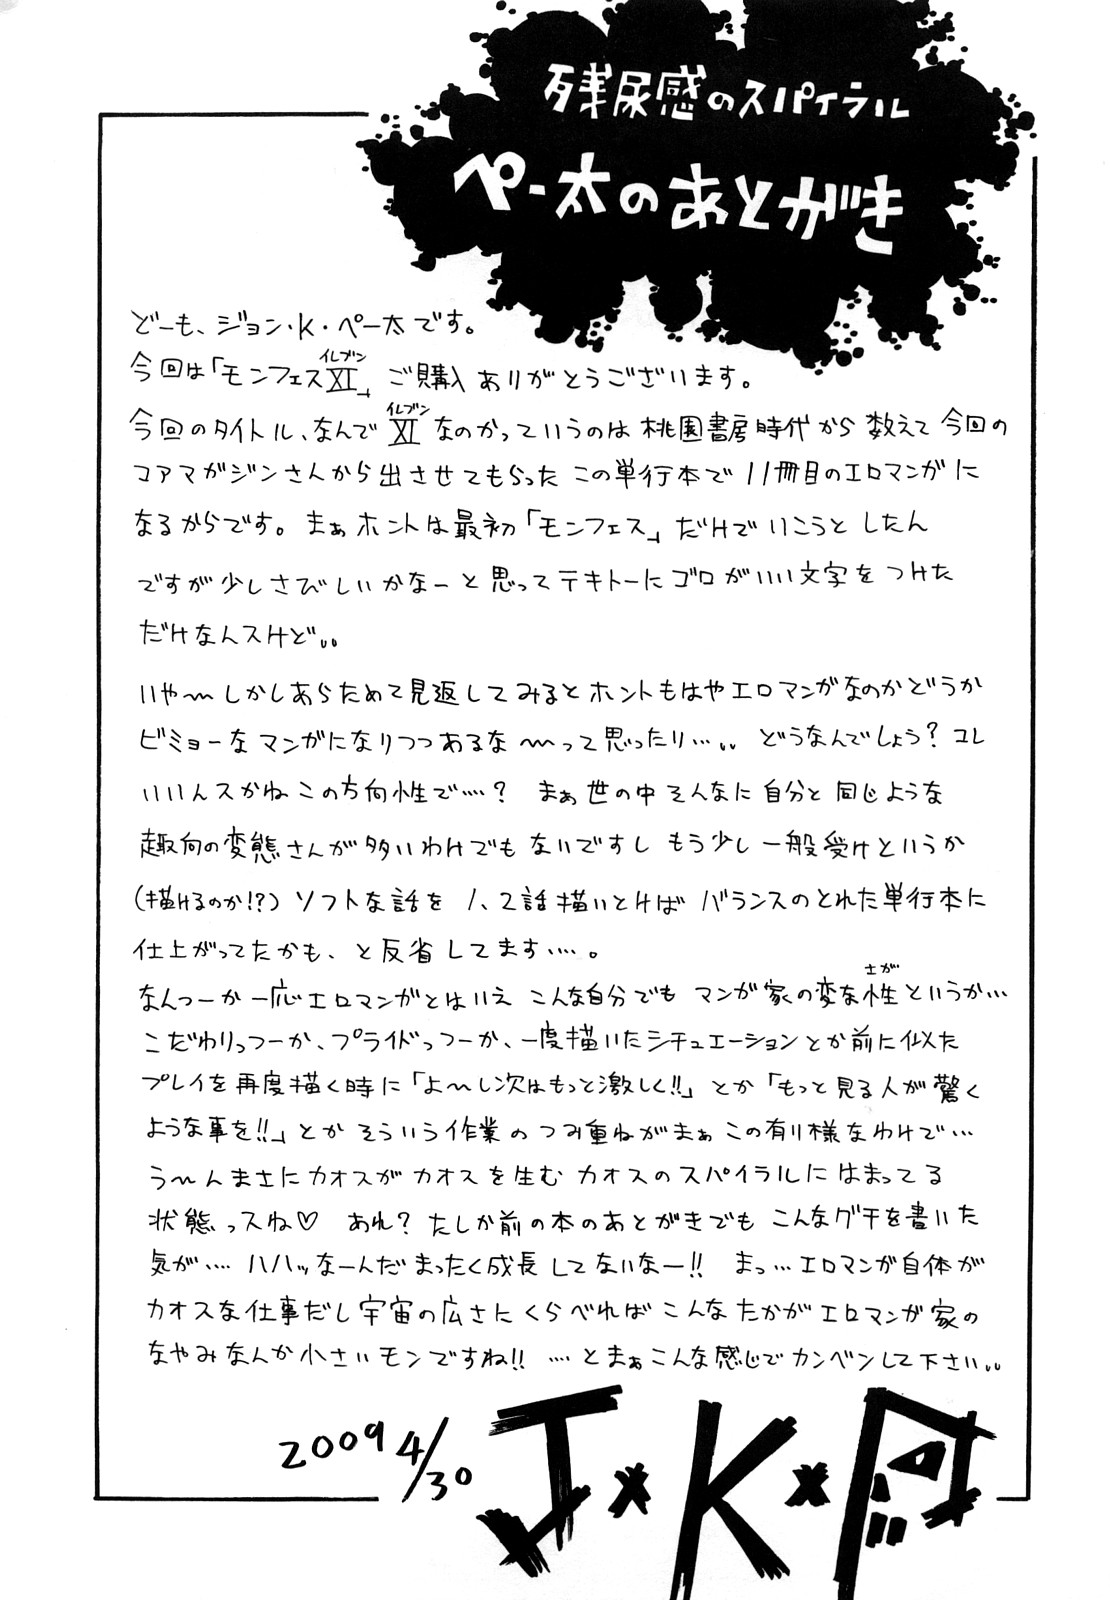 残尿感のスパイラル
ペー太のあとがき
どーも、ジョン・K・ペー太です。
イレブン
今回は「モンフェスXI」ご購入ありがとうございます。
イレブン
今回のタイトル、なんでXIなのかっていうのは桃園書房時代から数えて今回の
コアマガジンさんから出させてもらったこの単行本で11冊目のエロマンガに
なるからです。まぁホントは最初「モンフェス」だけでいこうとしたん
ですが少しさびしいかなーと思ってテキトーにゴロがいい文字をつけた
だけなんスけど、、
いや〜しかしあらためて見返してみるとホントもはやエロマンガなのかどうか
ビミョーなマンガになりつつあるな〜って思ったり…、、どうなんでしょう?コレ
いいんスかねこの方向性で….?まぁ世の中そんなに自分と同じような
趣向の変態さんが多いわけでもないですしもう少し一般受けというか
(描けるのか!?)ソフトな話を1、2話描いとけばバランスのとれた単行本に
仕上がってたかも、と反省してます….。
さが
なんつーか一応エロマンガとはいえこんな自分でもマンガ家の変な性というか…
こだわりっつーか、プライドっつーか、一度描いたシチュエーションとか前に似た
プレイを再度描く時に「よ〜し次はもっと激しく!!」とか「もっと見る人が驚く
ような事を!!」とかそういう作業のつみ重ねがまぁこの有り様なわけで…
う〜んまさにカオスがカオスを生むカオスのスパイラルにはまってる
状態っスね♡ あれ?たしか前の本のあとがきでもこんなグチを書いた
気が….ハハッなーんだまったく成長してないなー!! まっ…エロマンガ自体が
カオスな仕事だし宇宙の広さにくらべればこんなたかがエロマンガ家の
なやみなんか小さいモンですね!! ….とまぁこんな感じでカンベンして下さい、、
2009 4/30
J×K×P